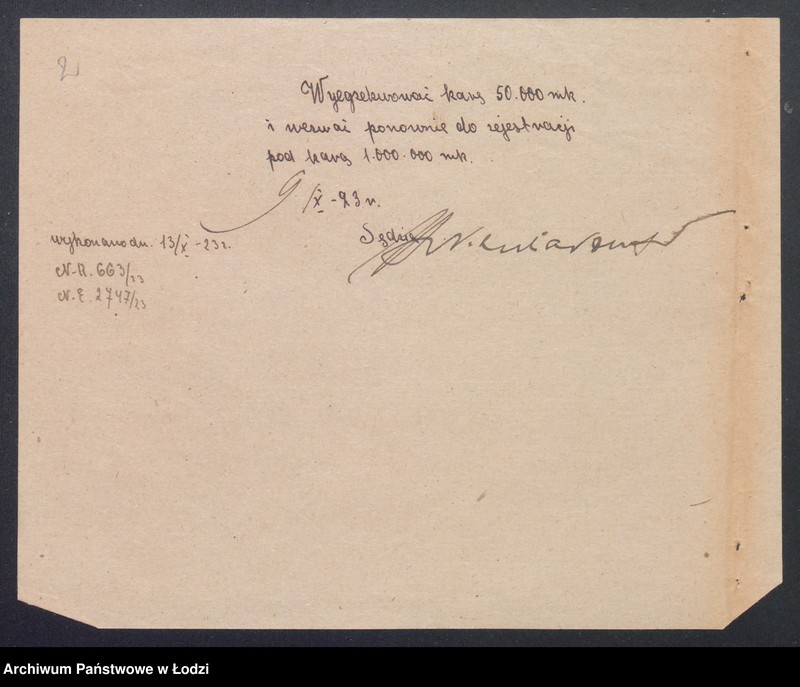 2
Wyegzekwować karę 50.000 mk.
i wezwać ponownie do rejestracji
pod karą 1.000.000 mk.
9/X -23 r.
Sędzia
wykonano dn. 13/X -23 r.
N-R. 663/23
N. E. 2747/23
Archiwum Państwowe w Łodzi